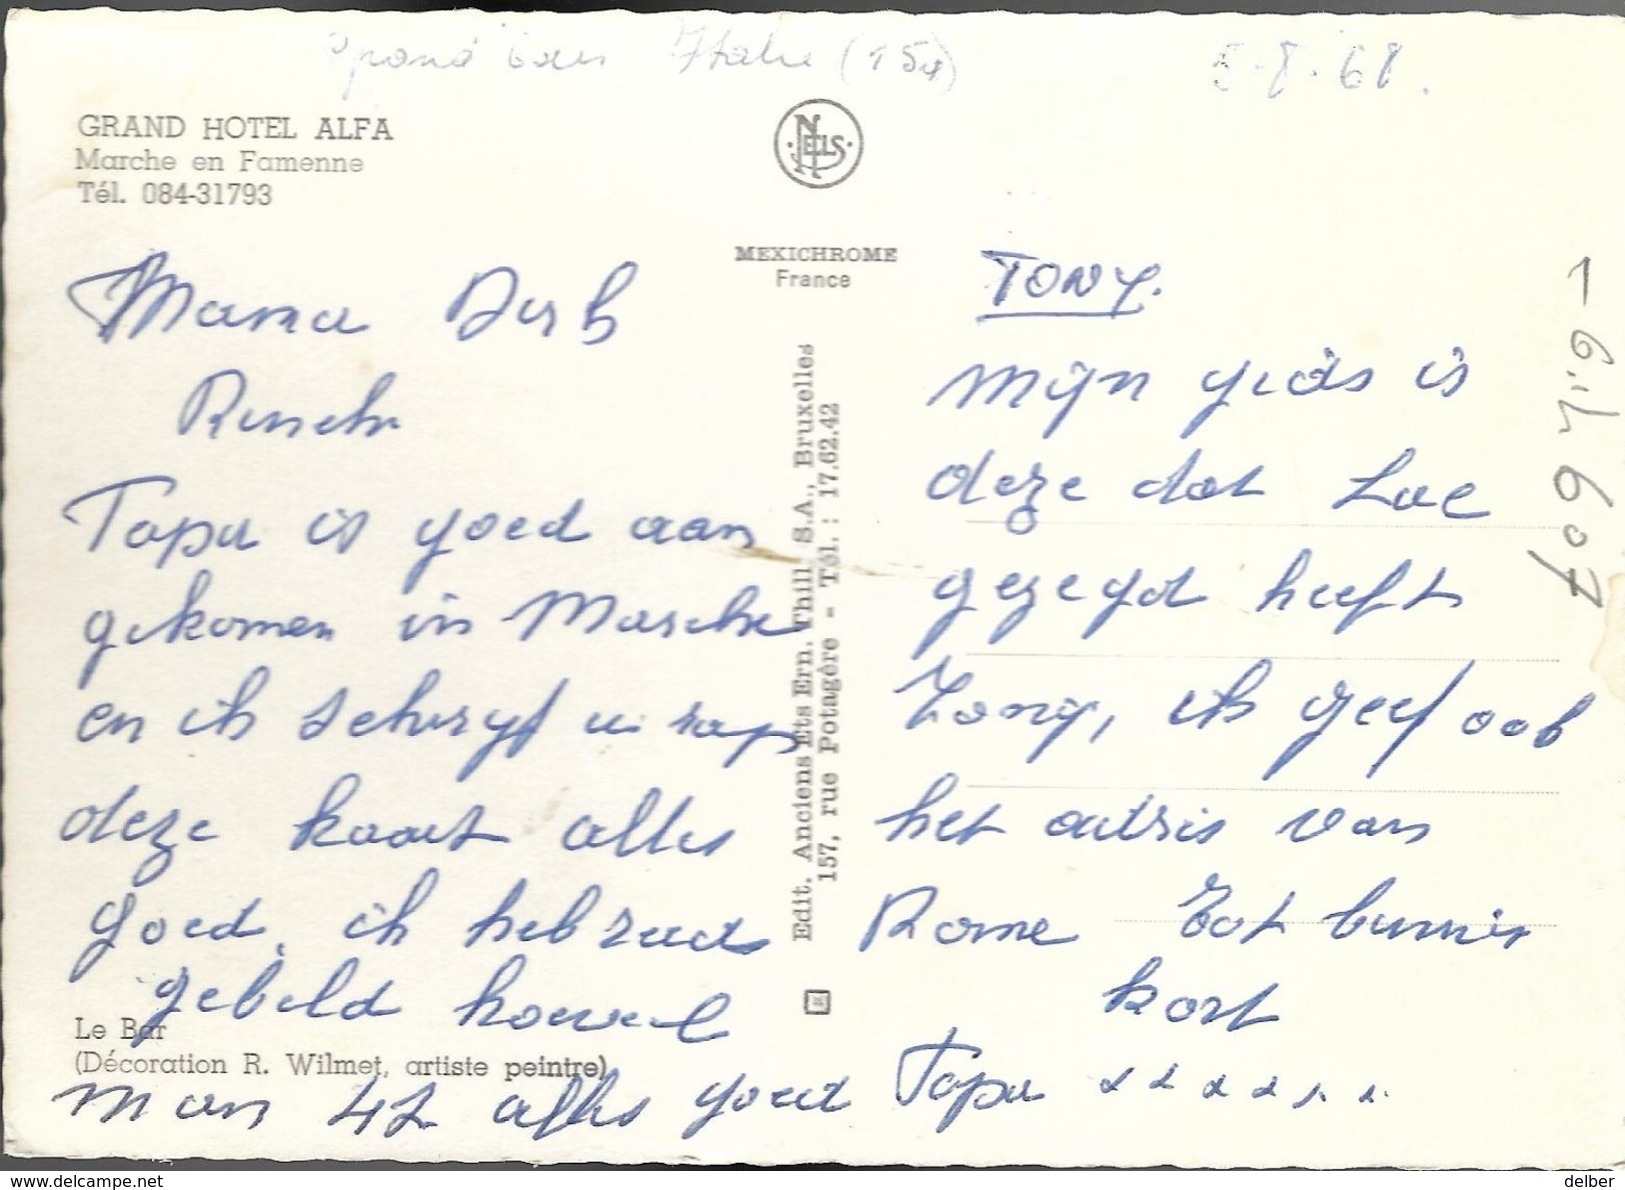 Grand Tour Italie (15x) 5.8.68.
GRAND HOTEL ALFA
Marche en Famenne
Tél. 084-31793
NELS
MEXICHROME
France
Edit. Anciens Ets Ern. Thill S.A., Bruxelles
157, rue Potagère - Tél. : 17.62.42
Mama
Papa is goed aan
gekomen in Marche
en ik schrijf u rap
deze kaart alles
goed, ik heb reeds
gebeld hoeveel
man 42 alles goed
Le Bar
(Décoration R. Wilmet, artiste peintre)
TONY.
Mijn gids is
deze dat Luc
gezegd heeft
Tony, ik geef ook
het adres van
Rome Tot binnen
kort
Papa x x x x x x
www.delcampe.net
delber